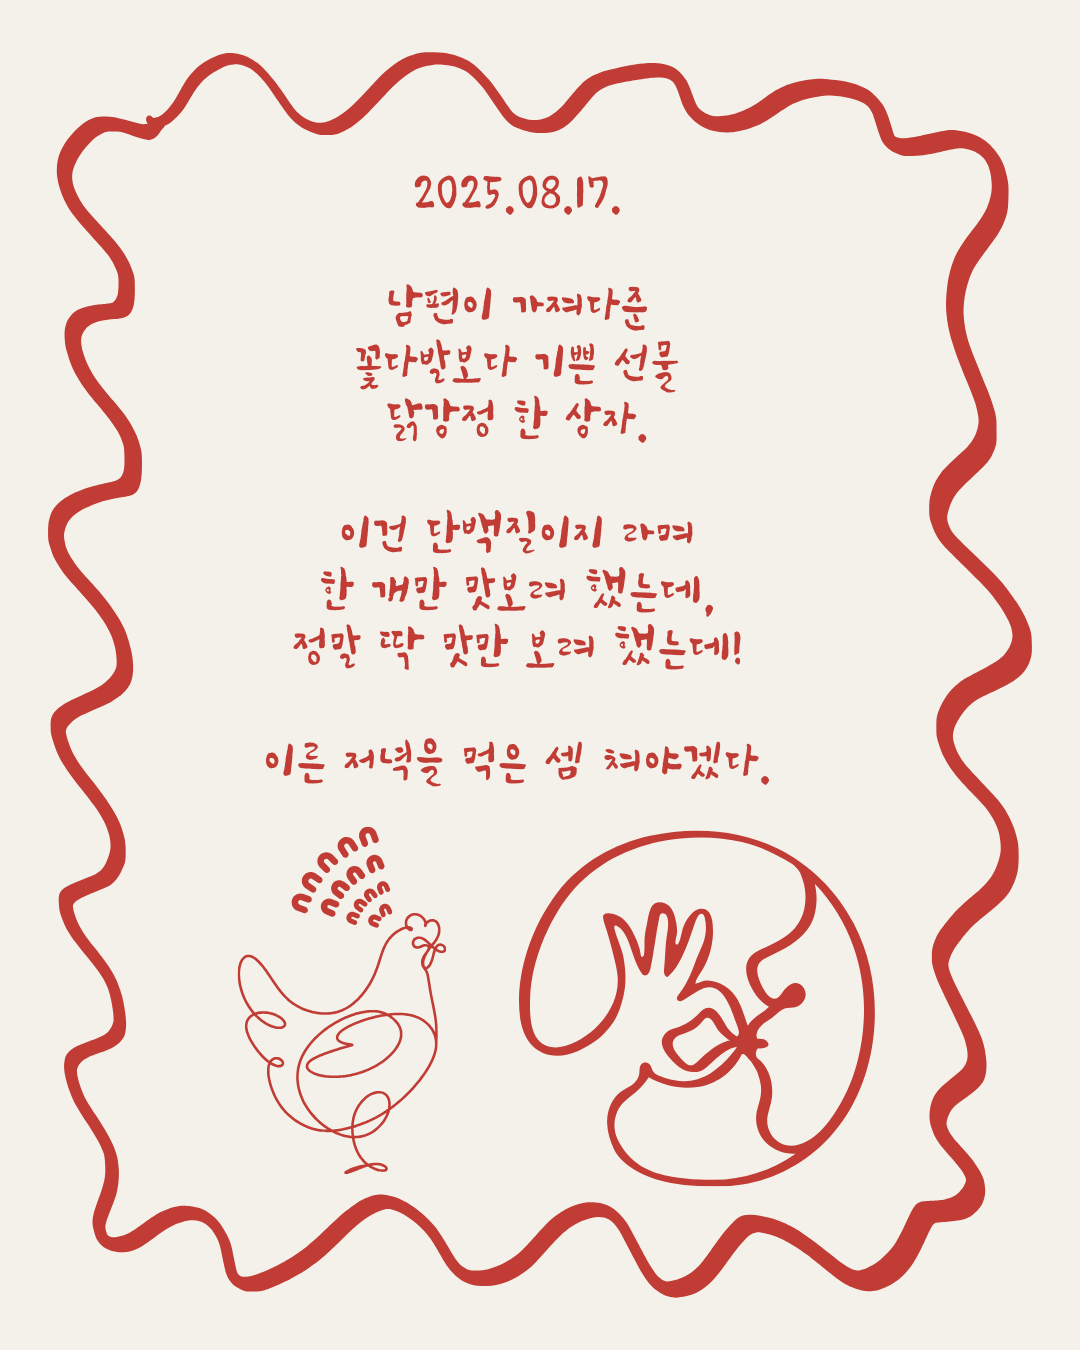 2025.08.17.
남편이 가져다준
꽃다발보다 기쁜 선물
닭강정 한 상자.
이건 단백질이지 라며
한 개만 맛보려 했는데,
정말 딱 맛만 보려 했는데!
이른 저녁을 먹은 셈 쳐야겠다.